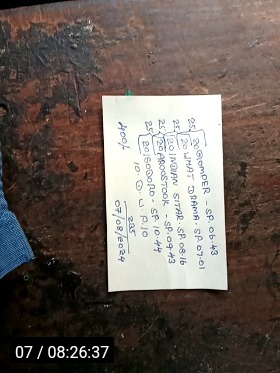 25 20 GOMPER - SP. 06.43
25 20 WHAT DRAMA. SP. 07.01
25 20 INDIAN SITAR. SP. 08.16
25 20 AROOSTOOK - SP. 09.43
25 20 GODOPO - SP. 10.44
10. W. P. 10
400/-
235
07/08/2024
07 / 08:26:37